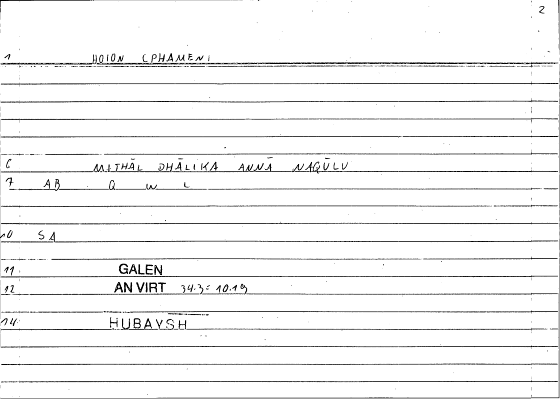 2
1 HOION EPHAMEN
6 MITHĀL DHĀLIKA ANNĀ NAQŪLU
7 AB Q W L
10 SA
11 GALEN
12 AN VIRT 34.3 = 10.19
14 HUBAYSH